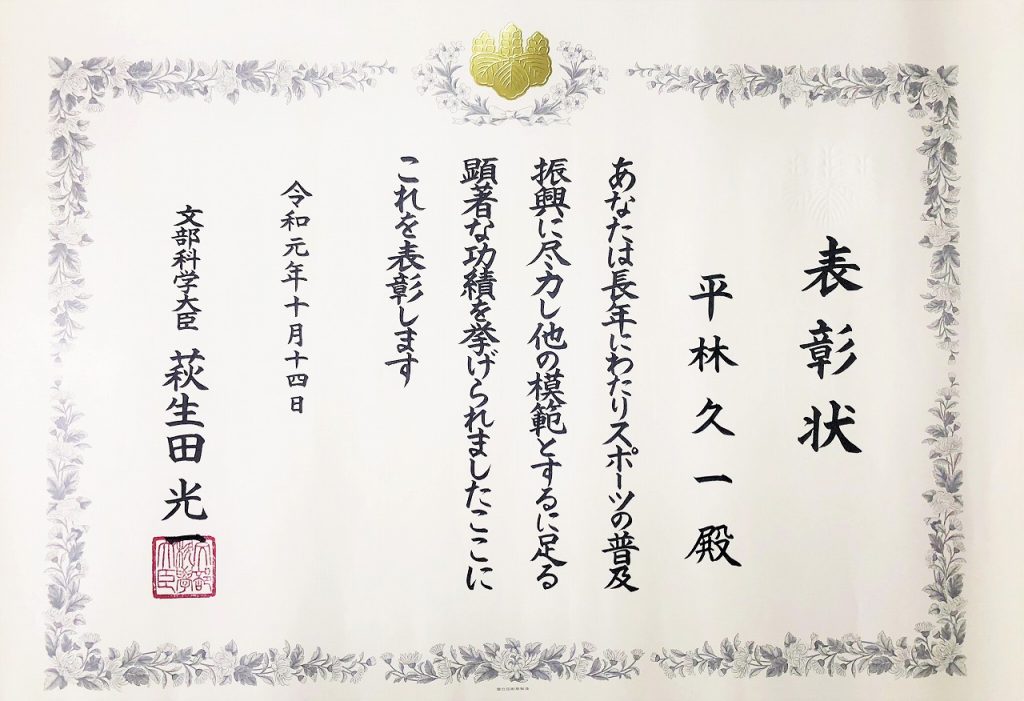 表彰状
平林久一殿
あなたは長年にわたりスポーツの普及
振興に尽力し他の模範とするに足る
顕著な功績を挙げられましたここに
これを表彰します
令和元年十月十四日
文部科学大臣 萩生田光一